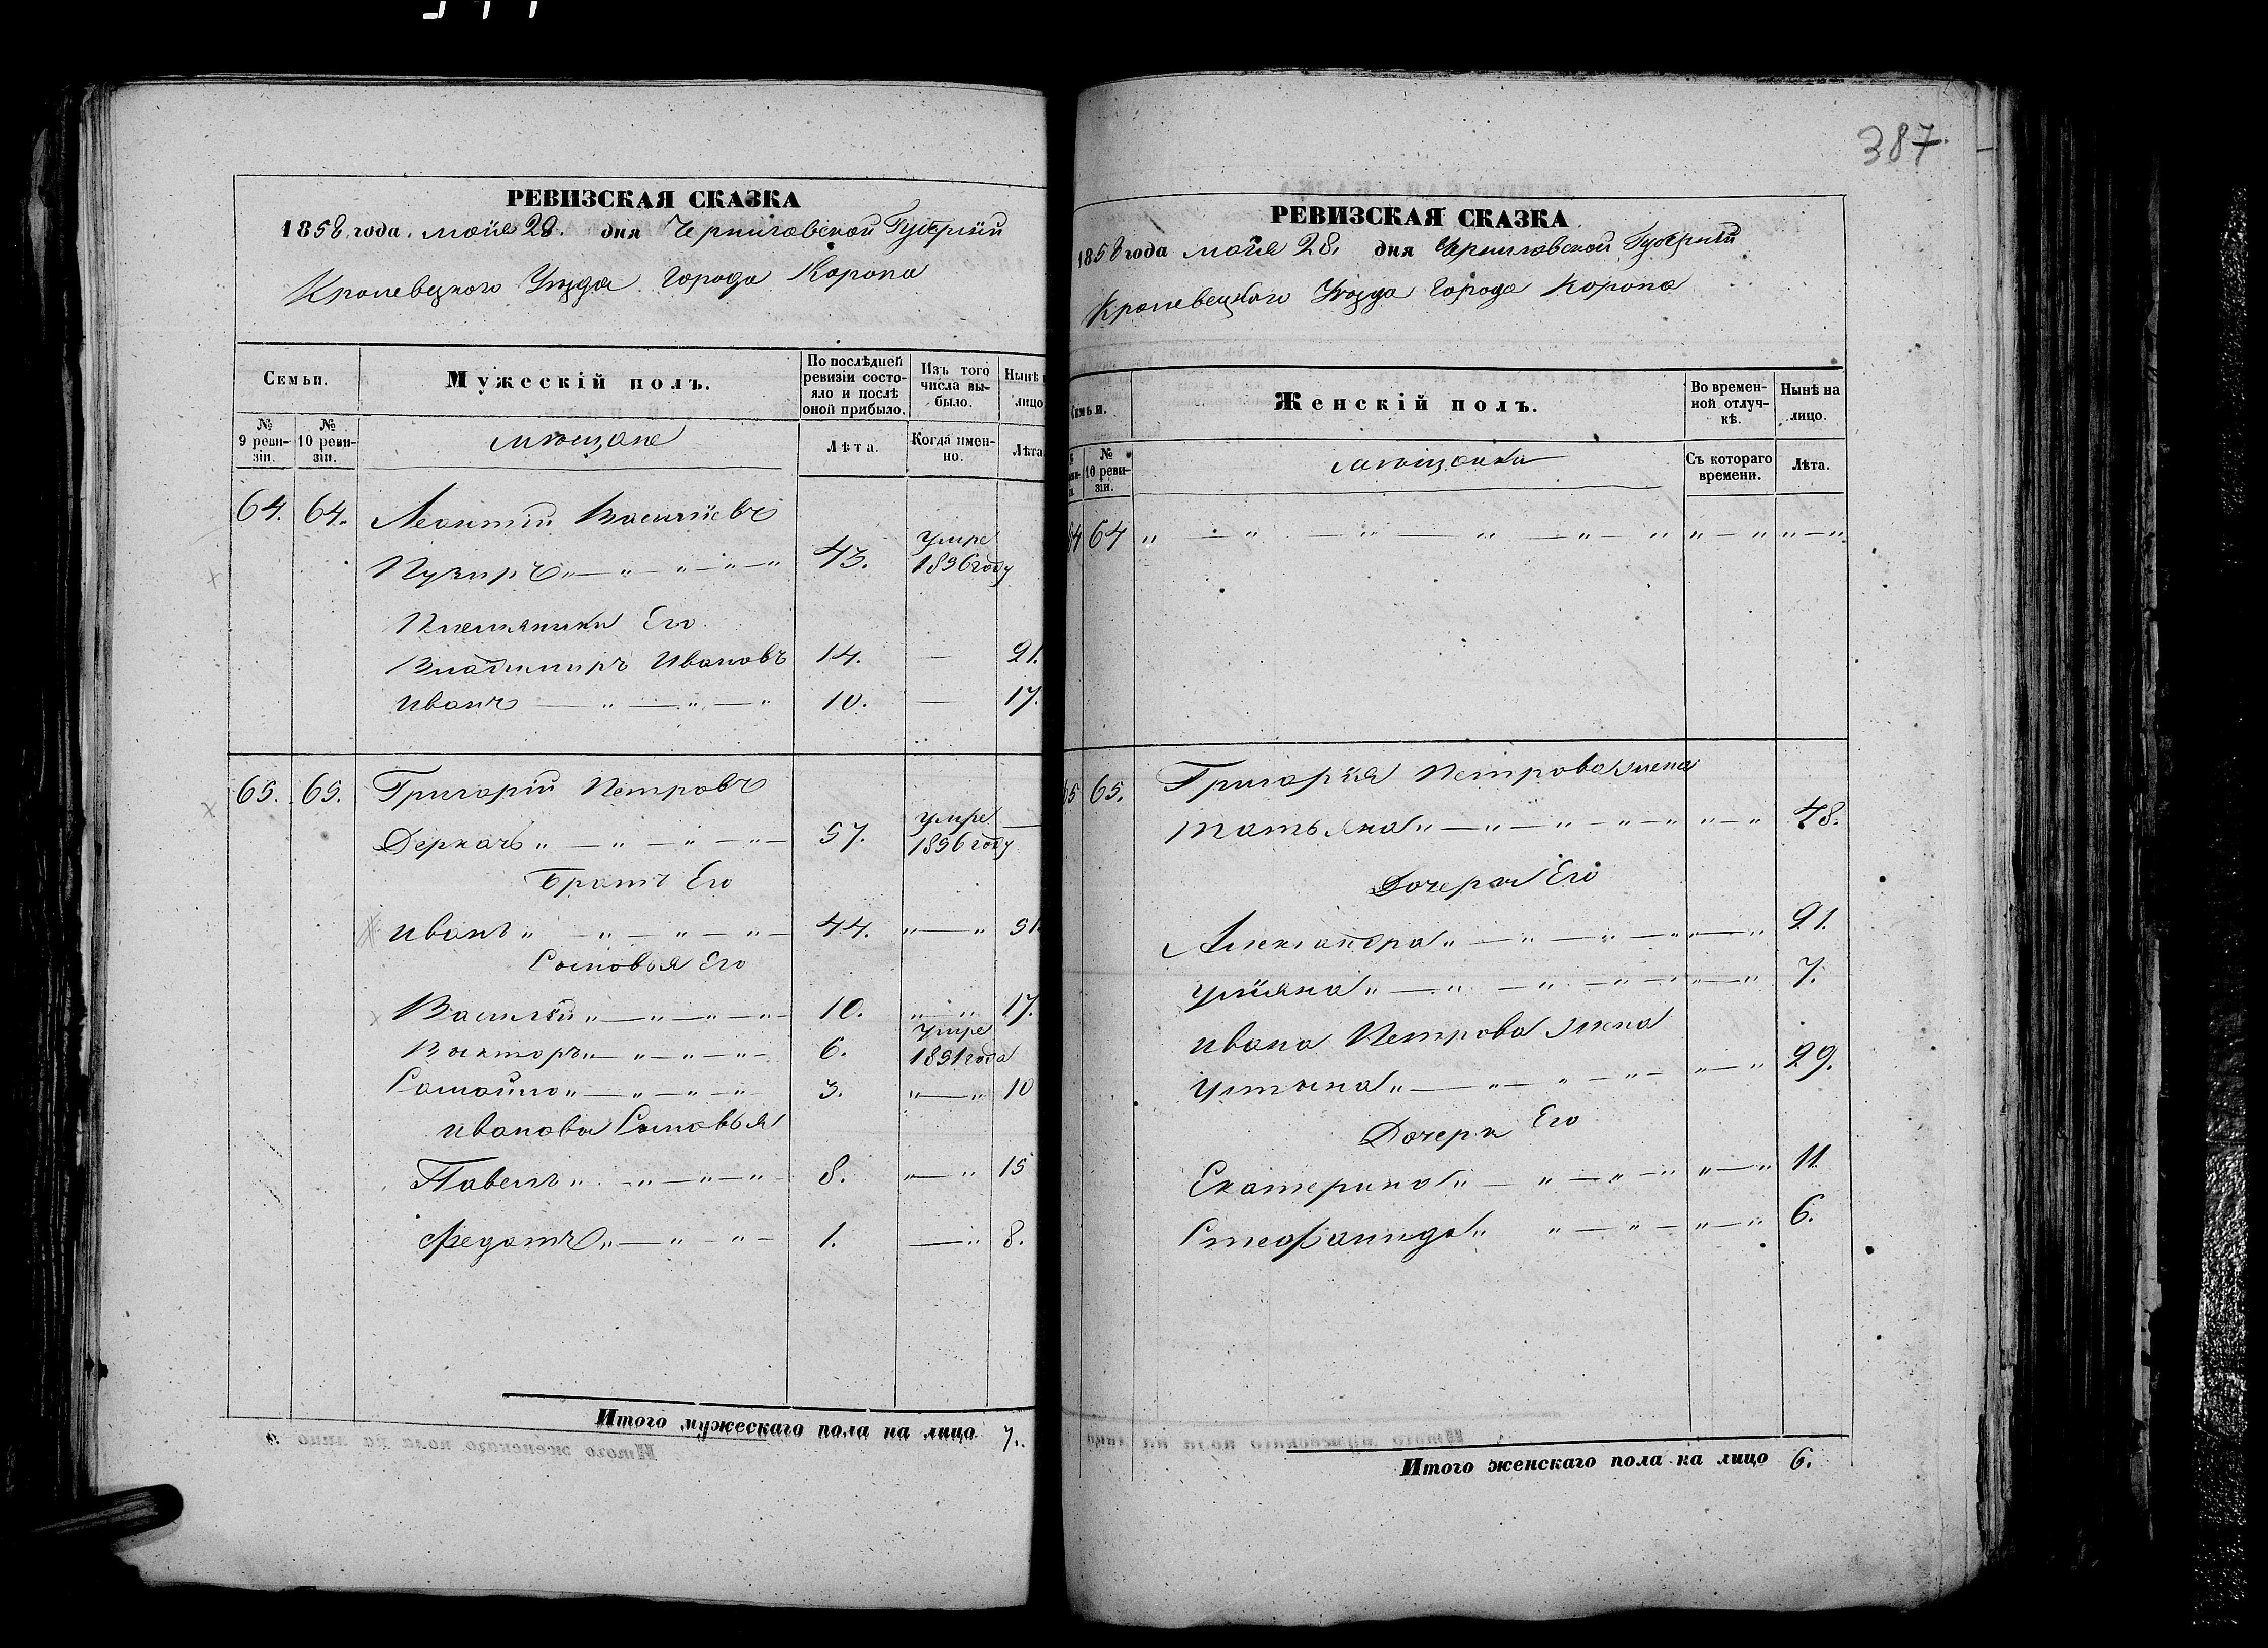 387
РЕВИЗСКАЯ СКАЗКА
1858 года. мая 28. дня Черниговской Губерніи
Кролевецкого Уѣзда Города Коропа
Семьи.
Мужескій полъ.
По послѣдней ревизіи состояло и послѣ оной прибыло.
Изъ того числа выбыло.
Нынѣ на лицо
№ 9 ревизіи.
№ 10 ревизіи.
мѣщане
Лѣта.
Когда именно.
Лѣта
64. 64. Леонтій Васильевъ
Пузиръ 43. умре 1856 году
Племяники Его
Владимиръ Ивановъ 14. — 21.
Иванъ 10. — 17.
65. 65. Григорій Петровъ
Деркачъ 57. умре 1856 году —
Братъ Его
Иванъ 44. 51
Сыновья Его
Василій 10. 17.
Викторъ 6. умре 1851 года
Самойло 3. 10
Ивановы Сыновья
Павелъ 8. 15
Федотъ 1. 8.
Итого мужескаго пола на лицо 7.
РЕВИЗСКАЯ СКАЗКА
1858 года мая 28. дня Черниговской Губерніи
Кролевецкого Уѣзда Города Коропа
Семьи.
Женскій полъ.
Во временной отлучкѣ.
Нынѣ на лицо.
№ 10 ревизіи.
мѣщанки
Съ котораго времени.
Лѣта.
64 64
65 65. Григорія Петрова жена
Татьяна 48.
Дочери Его
Александра 21.
Уліяна 7.
Ивана Петрова жена
Устина 29.
Дочери Его
Екатерина 11
Стефанида 6.
Итого женскаго пола на лицо 6.